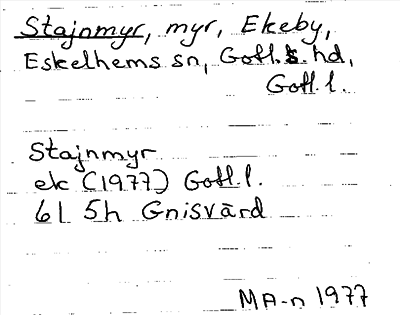 Stajnmyr, myr, Ekeby,
Eskelhems sn, Gotl. s. hd,
Gotl. l.
Stajnmyr
ek (1977) Gotl. l.
6I 5h Gnisvärd
MA-n 1977